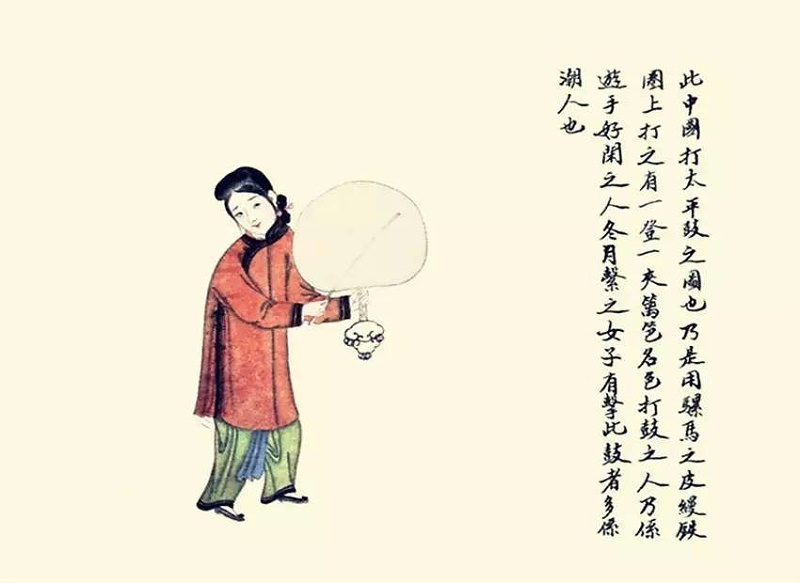 此中國打太平鼓之圖也乃是用騾馬之皮縵鉄
圈上打之有一登一夾篱笆名色打鼓之人乃係
遊手好閑之人冬月繫之女子有擊此鼓者多係
潮人也